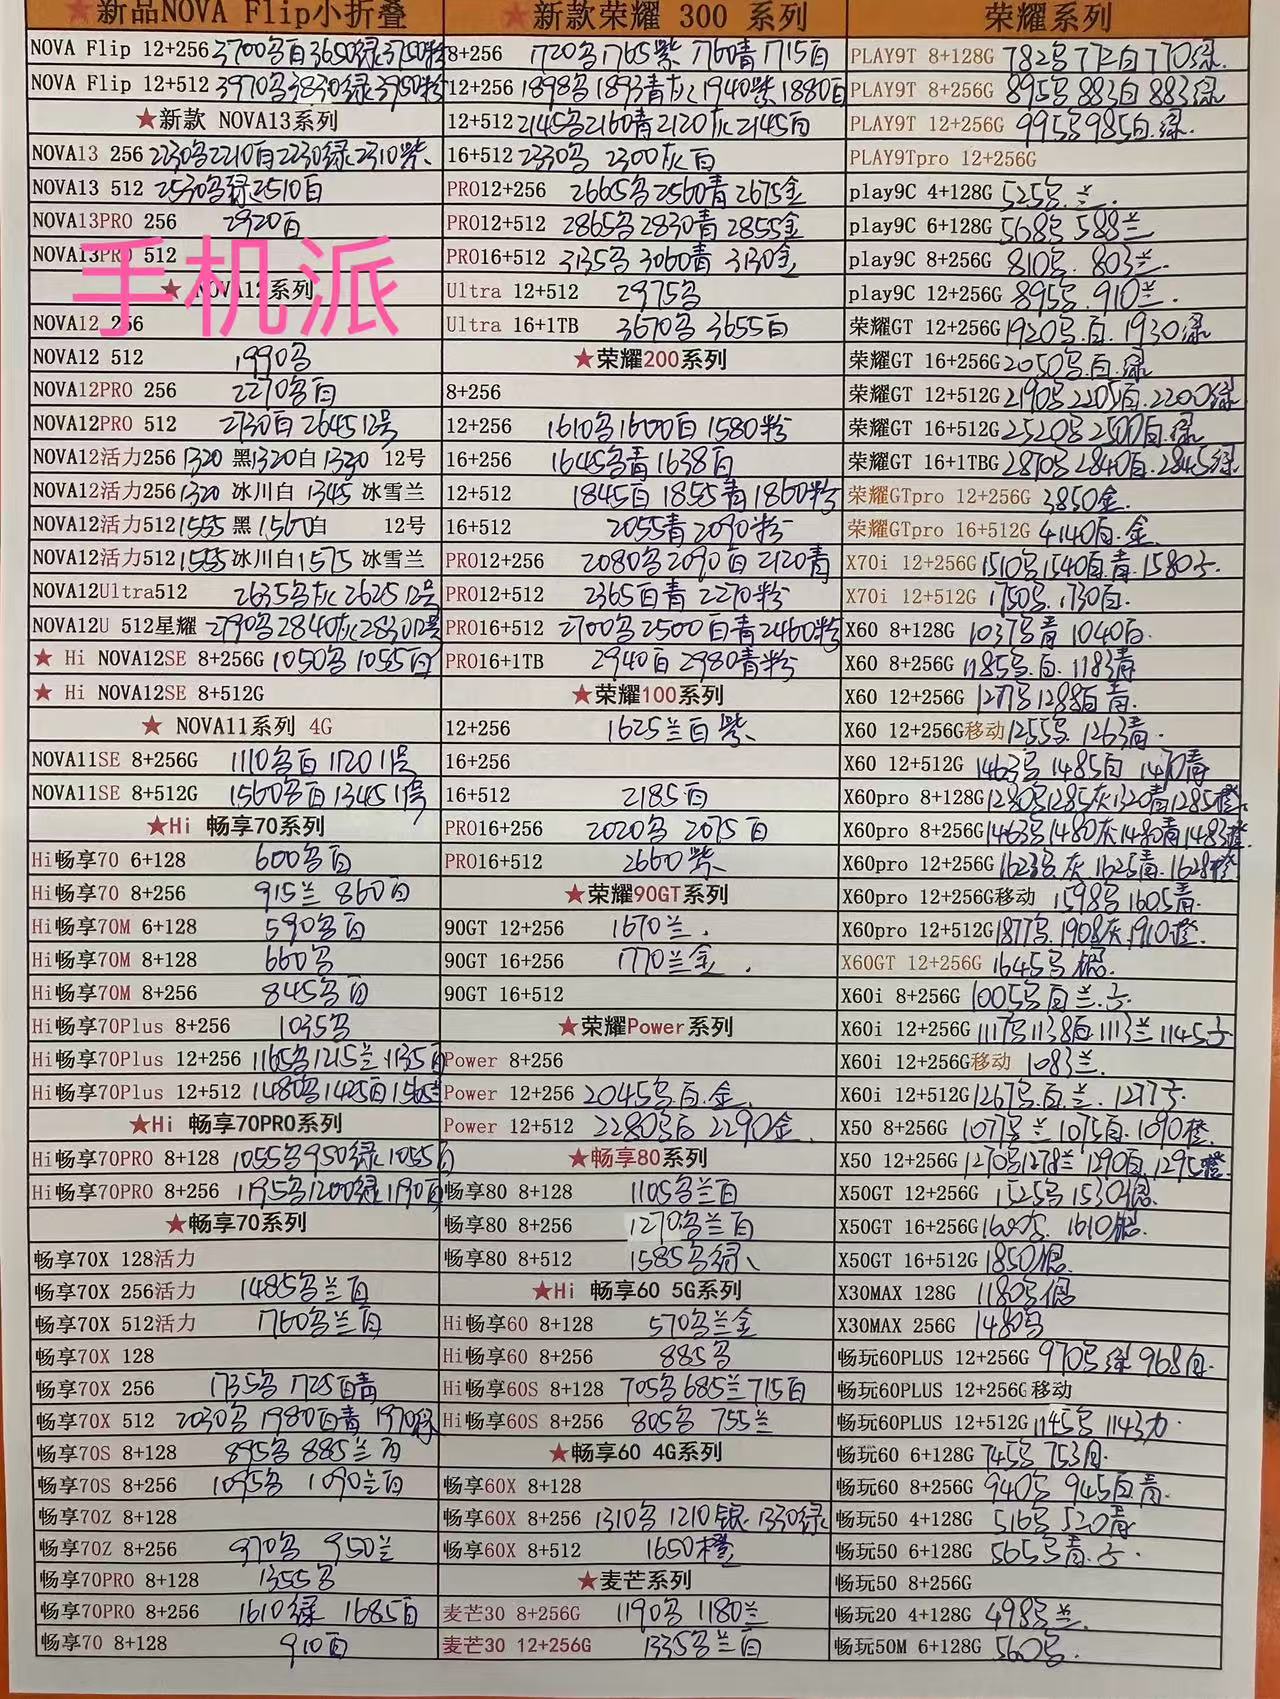 ★新品NOVA Flip小折叠
NOVA Flip 12+256 3700名白3650绿3750粉
NOVA Flip 12+512 3970名3830绿3950粉
★新款 NOVA13系列
NOVA13 256 2230名2210白2230绿2310紫
NOVA13 512 2530名绿2510白
NOVA13PRO 256 2920白
NOVA13PRO 512
手机派
★ NOVA12系列
NOVA12 256
NOVA12 512 1990名
NOVA12PRO 256 2270名白
NOVA12PRO 512 2730白 2645 12号
NOVA12活力256 1320 黑1320白 1330 12号
NOVA12活力256 1320 冰川白 1345 冰雪兰
NOVA12活力512 1555 黑 1560白 12号
NOVA12活力512 1555 冰川白1575 冰雪兰
NOVA12Ultra512 2635名灰 2625 12号
NOVA12U 512星耀 2790名2840灰2830 12号
★ Hi NOVA12SE 8+256G 1050名 1055白
★ Hi NOVA12SE 8+512G
★ NOVA11系列 4G
NOVA11SE 8+256G 1110名白 1120 11号
NOVA11SE 8+512G 1560名白 1345 11号
★Hi 畅享70系列
Hi畅享70 6+128 600名白
Hi畅享70 8+256 915兰 860白
Hi畅享70M 6+128 590名白
Hi畅享70M 8+128 660名
Hi畅享70M 8+256 845名白
Hi畅享70Plus 8+256 1035名
Hi畅享70Plus 12+256 1165名1215兰1135白
Hi畅享70Plus 12+512 1480名1425白1565兰
★Hi 畅享70PRO系列
Hi畅享70PRO 8+128 1055名950绿1055白
Hi畅享70PRO 8+256 1195名1200绿1190白
★畅享70系列
畅享70X 128活力
畅享70X 256活力 1485名兰白
畅享70X 512活力 1760名兰白
畅享70X 128
畅享70X 256 1735名 1725白青
畅享70X 512 2030名 1980白青 1970绿
畅享70S 8+128 895名 885兰白
畅享70S 8+256 1095名 1090兰白
畅享70Z 8+128
畅享70Z 8+256 970名 950兰
畅享70PRO 8+128 1355名
畅享70PRO 8+256 1610绿 1685白
畅享70 8+128 910白
★新款荣耀 300 系列
8+256 1720名1765紫 1760青1715白
12+256 1898名1893青灰1940紫1880白
12+512 2145名2160青2120灰2145白
16+512 2330名 2300灰白
PRO12+256 2665名2560青2675金
PRO12+512 2865名2830青2855金
PRO16+512 3135名3060青3130金
Ultra 12+512 2975名
Ultra 16+1TB 3670名 3655白
★荣耀200系列
8+256
12+256 1610名1600白1580粉
16+256 1645名青1638白
12+512 1845白 1855青1860粉
16+512 2055青2090粉
PRO12+256 2080名2090白2120青
PRO12+512 2365白青 2270粉
PRO16+512 2700名2500白青2460粉
PRO16+1TB 2940白2980青粉
★荣耀100系列
12+256 1625兰白紫
16+256
16+512 2185白
PRO16+256 2020名 2075白
PRO16+512 2660紫
★荣耀90GT系列
90GT 12+256 1670兰
90GT 16+256 1770兰金
90GT 16+512
★荣耀Power系列
Power 8+256
Power 12+256 2045名.白.金
Power 12+512 2280名白 2290金
★畅享80系列
畅享80 8+128 1105名兰白
畅享80 8+256 1270名兰白
畅享80 8+512 1585名绿
★Hi 畅享60 5G系列
Hi畅享60 8+128 570名兰金
Hi畅享60 8+256 885名
Hi畅享60S 8+128 705名685兰715白
Hi畅享60S 8+256 805名 755兰
★畅享60 4G系列
畅享60X 8+128
畅享60X 8+256 1310名1210银1330绿
畅享60X 8+512 1650橙
★麦芒系列
麦芒30 8+256G 1190名1180兰
麦芒30 12+256G 1335名兰白
荣耀系列
PLAY9T 8+128G 782名 白770绿
PLAY9T 8+256G 895名883白883绿
PLAY9T 12+256G 995名985白.绿
PLAY9Tpro 12+256G
play9C 4+128G 525名.兰
play9C 6+128G 568名588兰
play9C 8+256G 810名.803兰
play9C 12+256G 895名.910兰
荣耀GT 12+256G 1920名.白.1930绿
荣耀GT 16+256G 2050名.白.绿
荣耀GT 12+512G 2190名2205白.2200绿
荣耀GT 16+512G 2520名2500白.绿
荣耀GT 16+1TBG 2870名2840白.2845绿
荣耀GTpro 12+256G 3850金
荣耀GTpro 16+512G 4140白.金
X70i 12+256G 1510名1540白.青.1580
X70i 12+512G 1750名.1730白
X60 8+128G 1037名青1040白
X60 8+256G 1185名.白.1183青
X60 12+256G 1277名1288白青
X60 12+256G移动 1255名.1263青
X60 12+512G 1463名1485白 1470青
X60pro 8+128G 1280名1285灰1320青1285橙
X60pro 8+256G 1463名1480灰1480青1483橙
X60pro 12+256G 1623名.灰.1625青.1628橙
X60pro 12+256G移动 1598名1605青
X60pro 12+512G 1877名.1908灰1910橙
X60GT 12+256G 1645名
X60i 8+256G 1005名白兰
X60i 12+256G 1117名1138白1113兰1145
X60i 12+256G移动 1083兰
X60i 12+512G 1267名.白.兰.1277
X50 8+256G 1077名兰1075白.1090橙
X50 12+256G 1270名1278兰1290白.1295橙
X50GT 12+256G 1525名1530银
X50GT 16+256G 1610银
X50GT 16+512G 1850银
X30MAX 128G 1180名银
X30MAX 256G 1480名
畅玩60PLUS 12+256G 970名绿968白
畅玩60PLUS 12+256G移动
畅玩60PLUS 12+512G 1145名 1143
畅玩60 6+128G 745名 753白
畅玩60 8+256G 940名 945白青
畅玩50 4+128G 516名 520青
畅玩50 6+128G 565名青
畅玩50 8+256G
畅玩20 4+128G 498名兰
畅玩50M 6+128G 560名